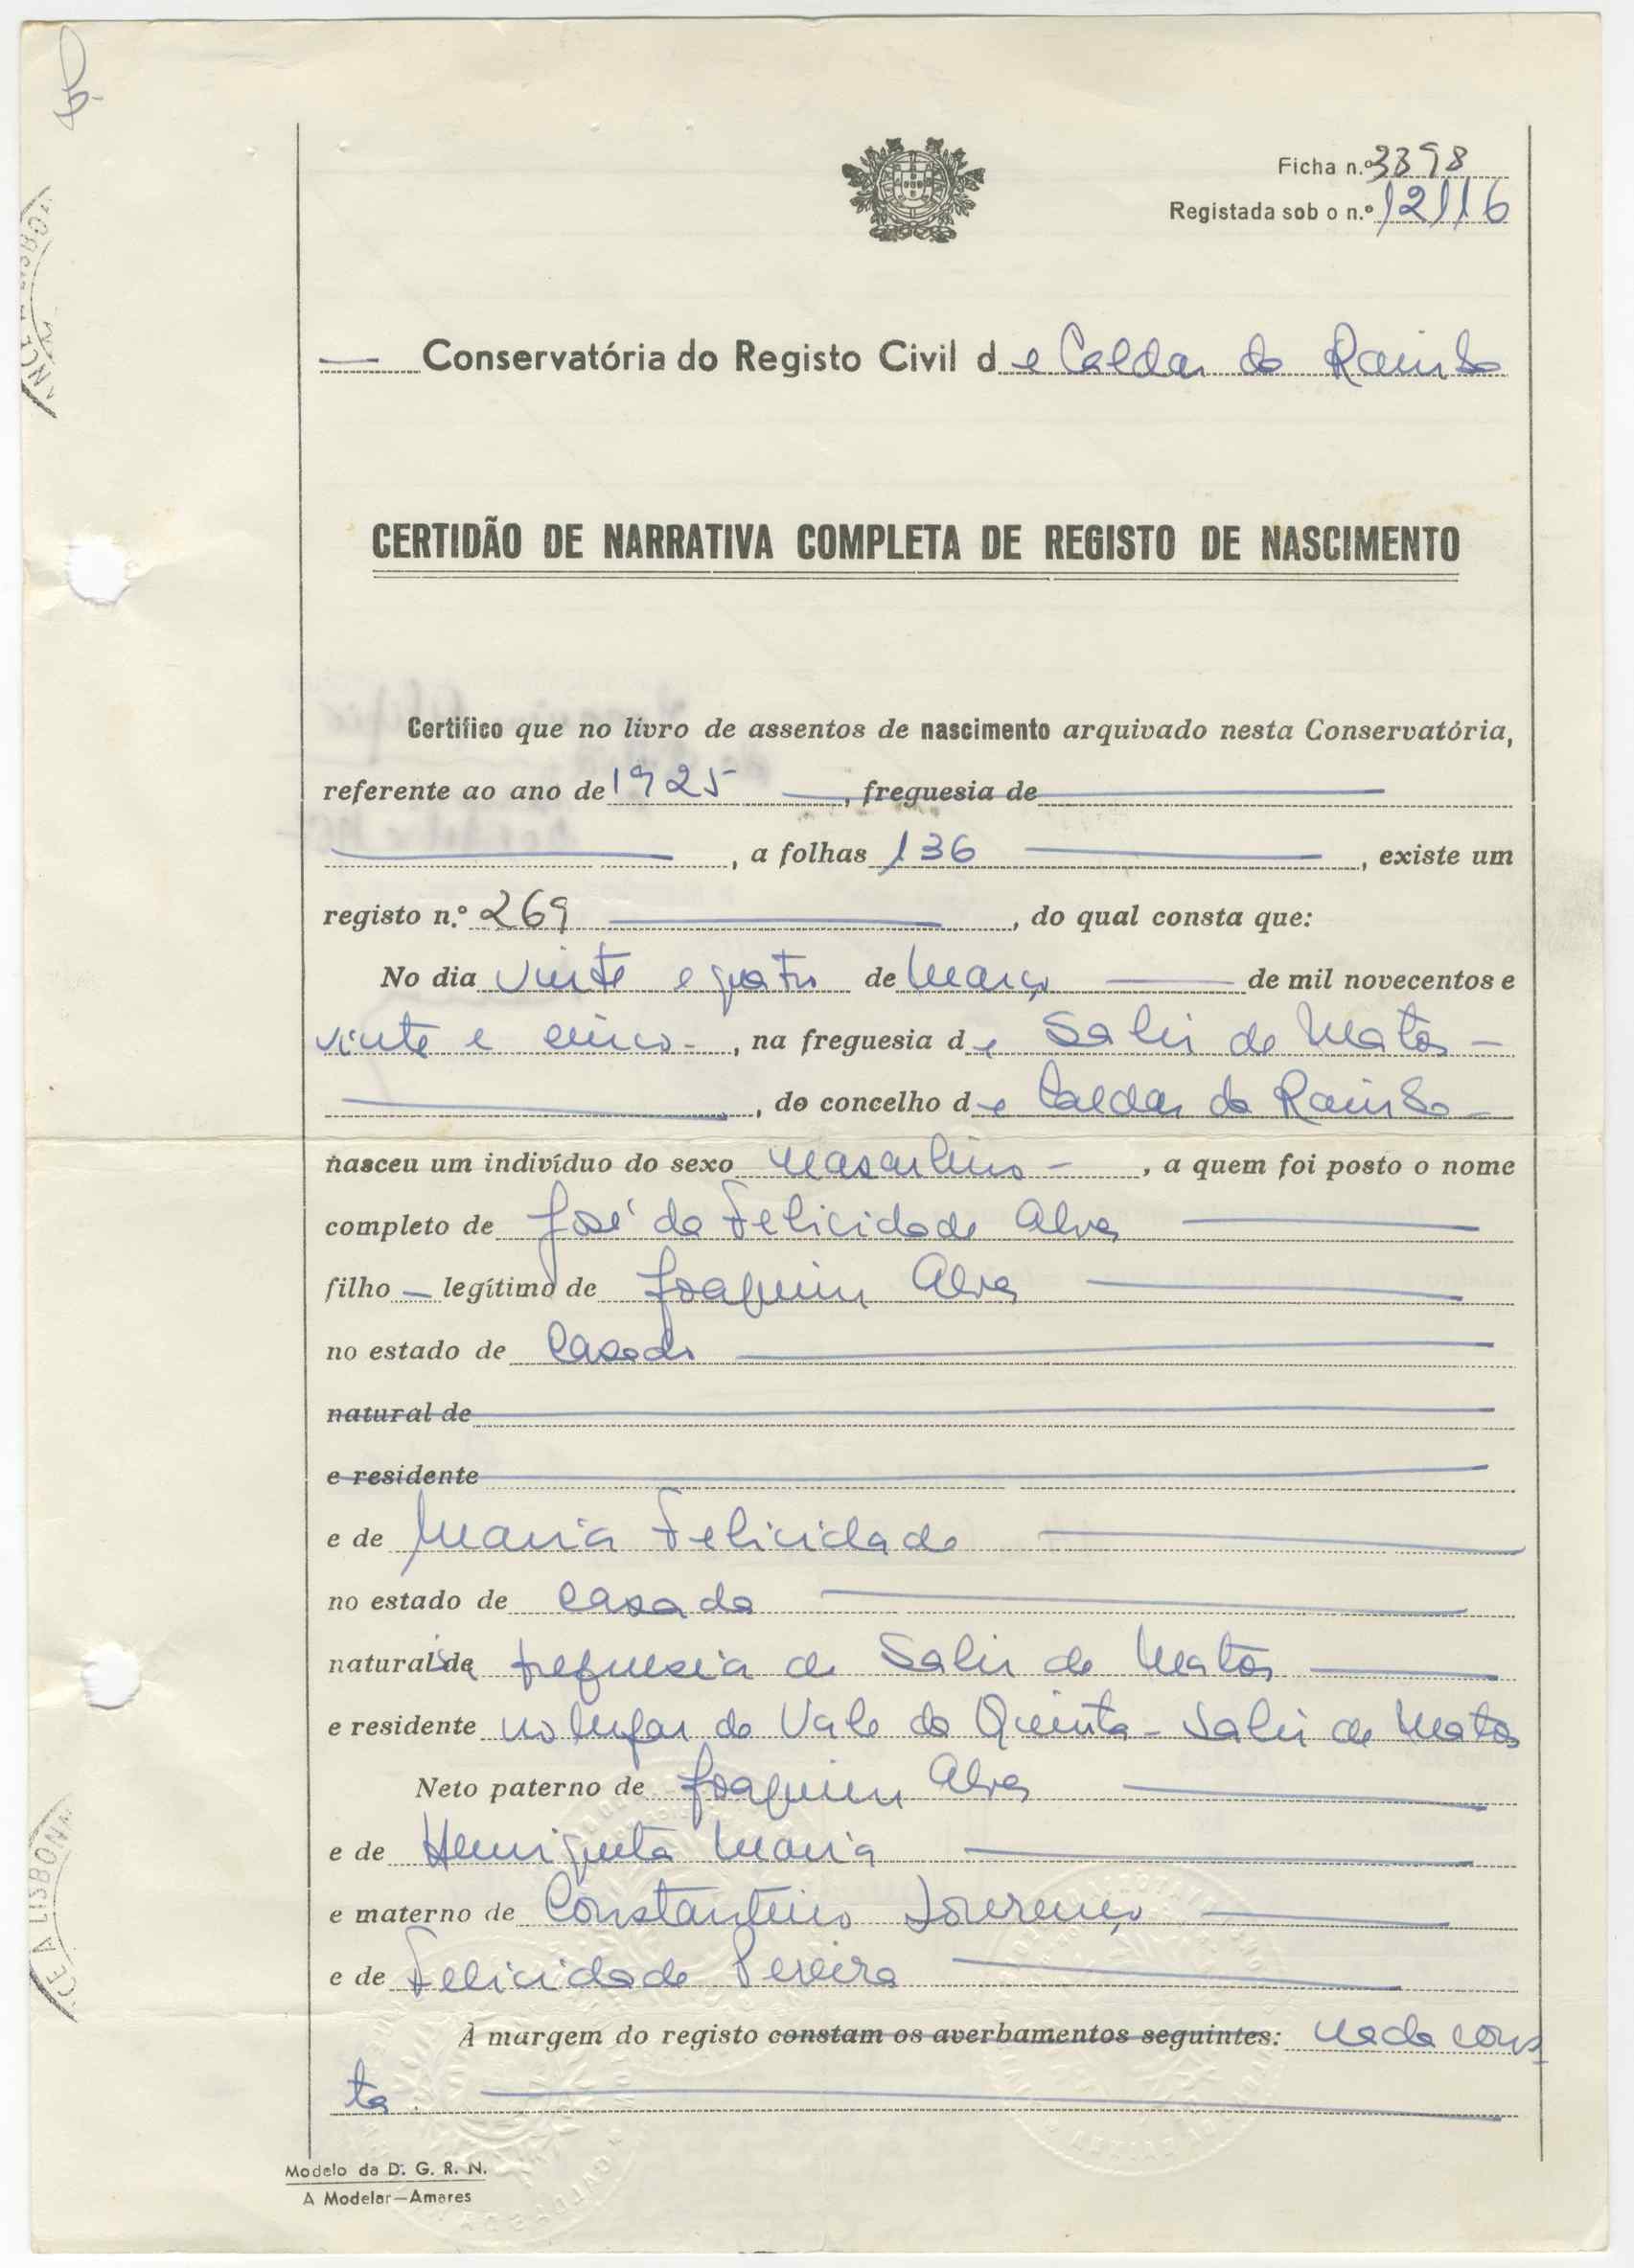 Ficha n.º 3398
Registada sob o n.º 12116
Conservatória do Registo Civil de Caldas da Rainha
CERTIDÃO DE NARRATIVA COMPLETA DE REGISTO DE NASCIMENTO
Certifico que no livro de assentos de nascimento arquivado nesta Conservatória,
referente ao ano de 1925, freguesia de
, a folhas 136, existe um
registo n.º 269, do qual consta que:
No dia vinte e quatro de Março de mil novecentos e
vinte e cinco, na freguesia de Salir de Matos
, do concelho de Caldas da Rainha
nasceu um indivíduo do sexo masculino, a quem foi posto o nome
completo de José da Felicidade Alves
filho legítimo de Joaquim Alves
no estado de casado
natural de
e residente
e de Maria Felicidade
no estado de casada
naturais da freguesia de Salir de Matos
e residente no lugar do Vale da Quinta - Salir de Matos
Neto paterno de Joaquim Alves
e de Henriqueta Maria
e materno de Constantino Lourenço
e de Felicidade Pereira
À margem do registo constam os averbamentos seguintes: nada cons
ta
Modelo da D. G. R. N.
A Modelar—Amares
CE A LISBONN